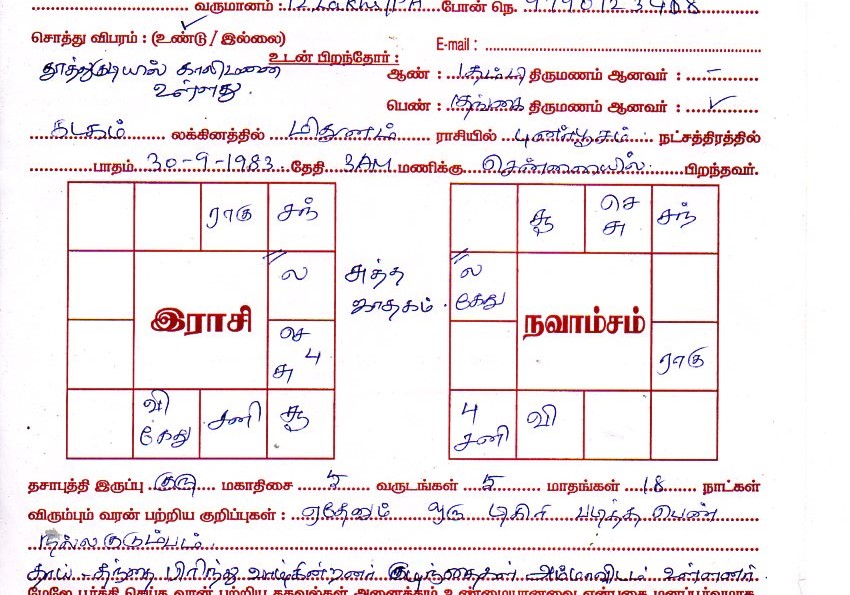 வருமானம் : 12 Lakhs/PA போன் நெ.
சொத்து விபரம் : (உண்டு / இல்லை)
E-mail :
உடன் பிறந்தோர் :
தூத்துகுடியில் காலிமனை
உள்ளது.
ஆண் : 1 தம்பி திருமணம் ஆனவர் : –
பெண் : 1 தங்கை திருமணம் ஆனவர் : ✓
கடகம் லக்கினத்தில் மிதுனம் ராசியில் புனர்பூசம் நட்சத்திரத்தில்
பாதம் 30-9-1983 தேதி 3AM மணிக்கு சென்னையில் பிறந்தவர்.
ராகு சந்
ல
செ
சு 4
வி
கேது சனி சூ
இராசி
சுத்த
ஜாதகம்.
சூ செ
சு சந்
ல
கேது
ராகு
4
சனி வி
நவாம்சம்
தசாபுத்தி இருப்பு குரு மகாதிசை 5 வருடங்கள் 5 மாதங்கள் 18 நாட்கள்
விரும்பும் வரன் பற்றிய குறிப்புகள் : ஏதேனும் ஒரு டிகிரி படித்த பெண்
நல்ல குடும்பம்.
தாய் - தந்தை பிரிந்து வாழ்கின்றனர் குழந்தைகள் அம்மாவிடம் உள்ளனர்.